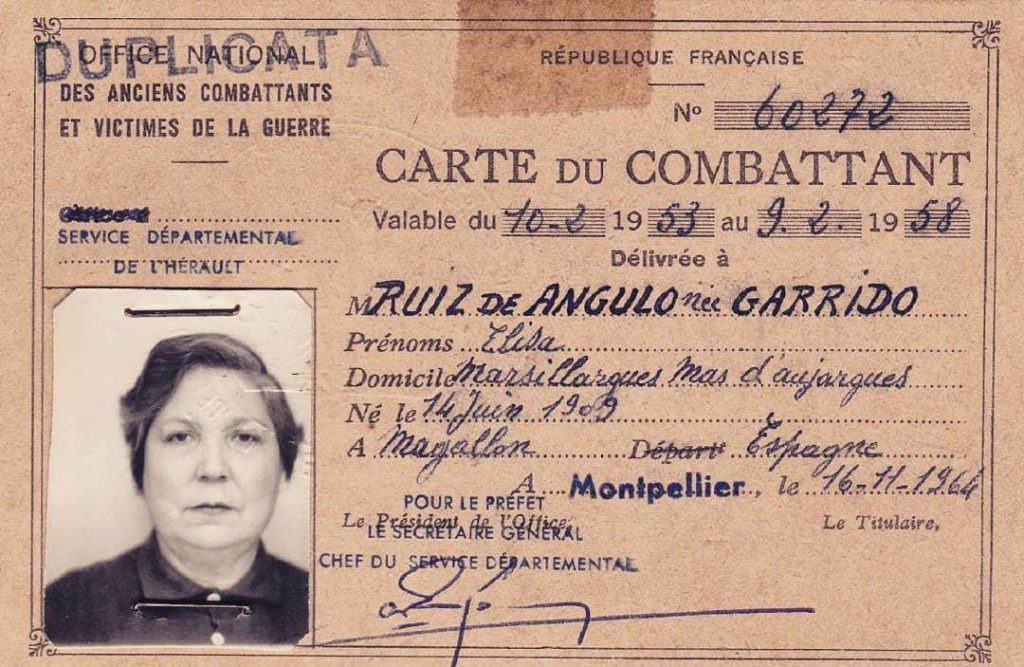 DUPLICATA
OFFICE NATIONAL
DES ANCIENS COMBATTANTS
ET VICTIMES DE LA GUERRE
SERVICE DÉPARTEMENTAL
DE L'HÉRAULT
RÉPUBLIQUE FRANÇAISE
Nº 60272
CARTE DU COMBATTANT
Valable du 10-2 1953 au 9.2. 1958
Délivrée à
M RUIZ DE ANGULO née GARRIDO
Prénoms Elisa
Domicile Marsillargues Mas d'aujargues
Né le 14 Juin 1909
A Magallon Départt Espagne
A Montpellier, le 16-11-1964
POUR LE PRÉFET
Le Président de l'Office,
Le Titulaire,
LE SECRÉTAIRE GÉNÉRAL
CHEF DU SERVICE DÉPARTEMENTAL